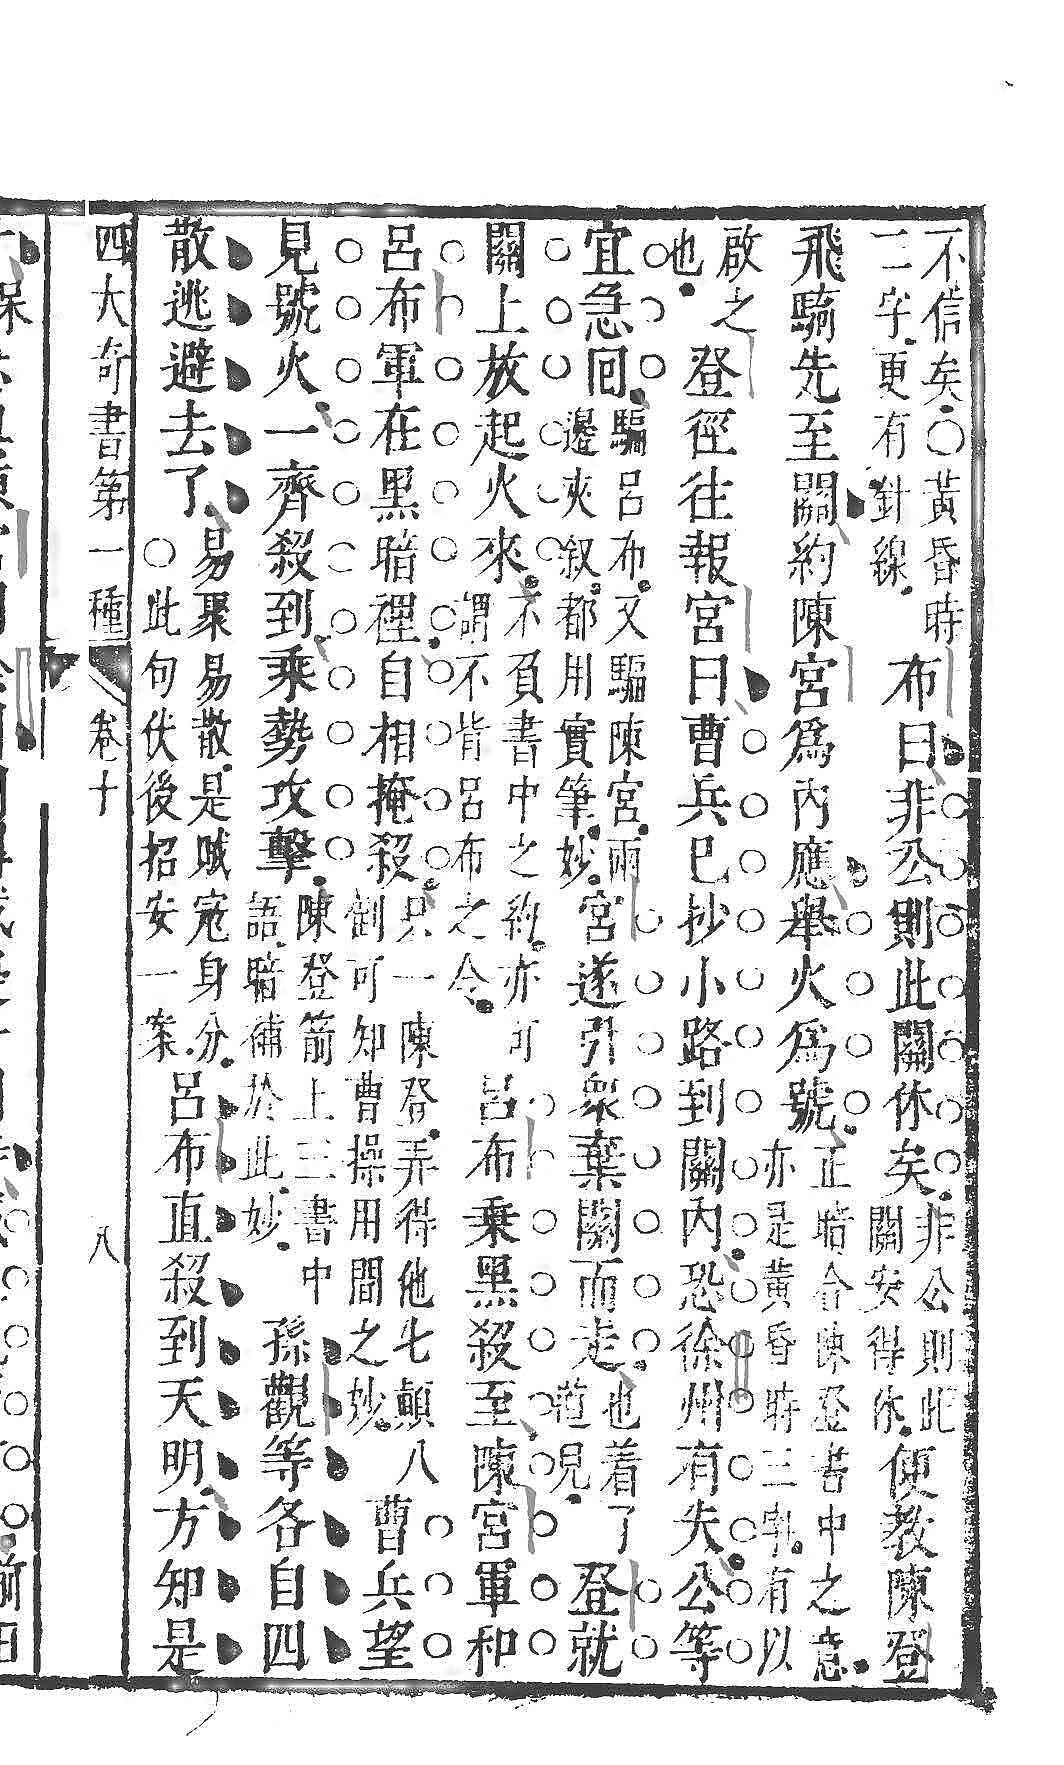 不信矣○黃昏時
二字更有針線
布曰非公則此關休矣
非公則此
關安得休
便教陳登
飛騎先至關約陳宮爲內應舉火爲號
正暗合陳登書中之意
亦是黃昏時三字有以
啟之
也
登徑往報宮曰曹兵已抄小路到關內恐徐州有失公等
宜急回
驅呂布又驅陳宮兩
邊夾叙都用實筆妙
宮遂引衆棄關而走
也着了
道兒
登就
關上放起火來
不負書中之約亦可
謂不背呂布之令
呂布乘黑殺至陳宮軍和
呂布軍在黑暗裡自相掩殺
只一陳登弄得他七顛八
倒可知曹操用間之妙
曹兵望
見號火一齊殺到乘勢攻擊
陳登箭上三書中
語暗補於此妙
孫觀等各自四
散逃避去了
易聚易散是賊寇身分
○此句伏後招安一案
呂布直殺到天明方知是
四大奇書第一種 卷十 八